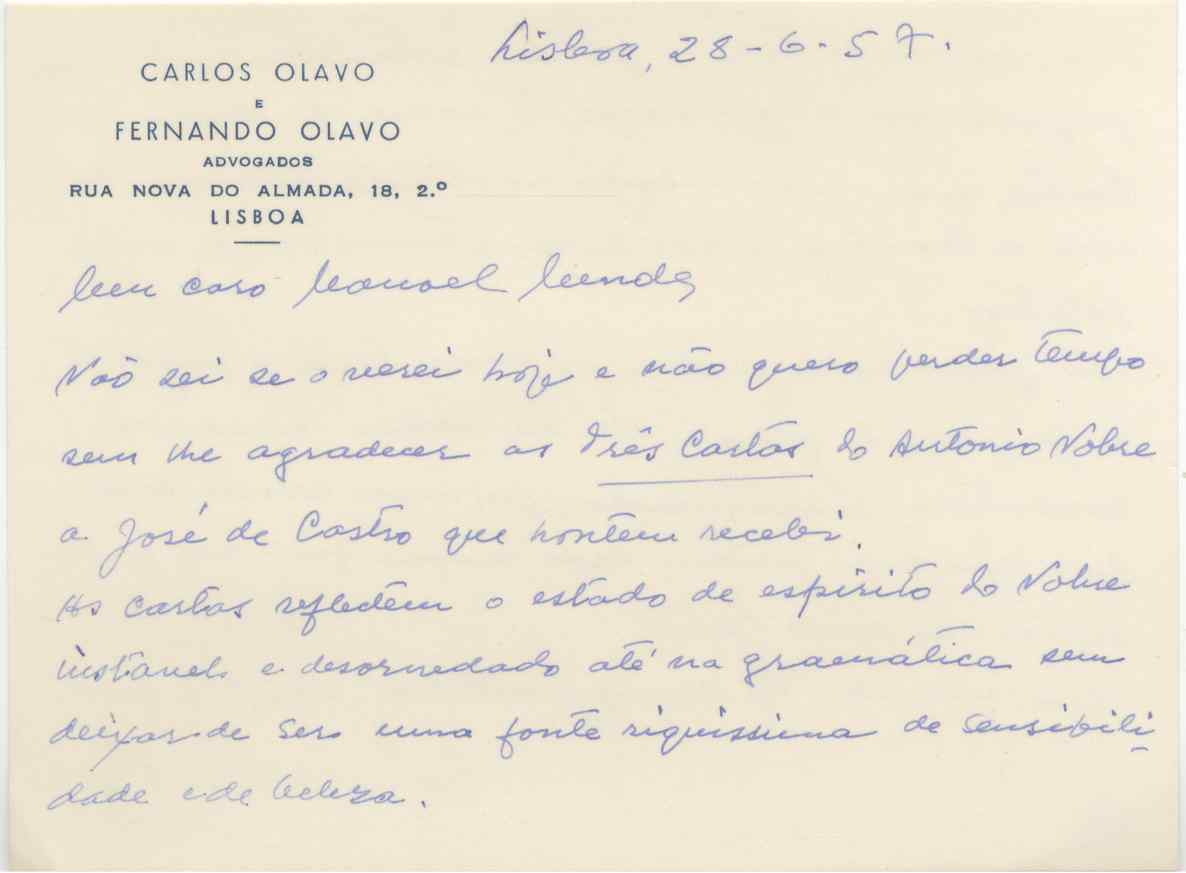 Lisboa, 28-6-57.
CARLOS OLAVO
E
FERNANDO OLAVO
ADVOGADOS
RUA NOVA DO ALMADA, 18, 2.º
LISBOA
Meu caro Manoel Mendes
Não sei se o verei hoje e não quero perder tempo
sem lhe agradecer as Três Cartas do Antonio Nobre
a José de Castro que hontem recebi.
As cartas reflectem o estado de espirito do Nobre
instavel e desordenado até na gramática sem
deixar de ser uma fonte riquissima de sensibili-
dade e de beleza.